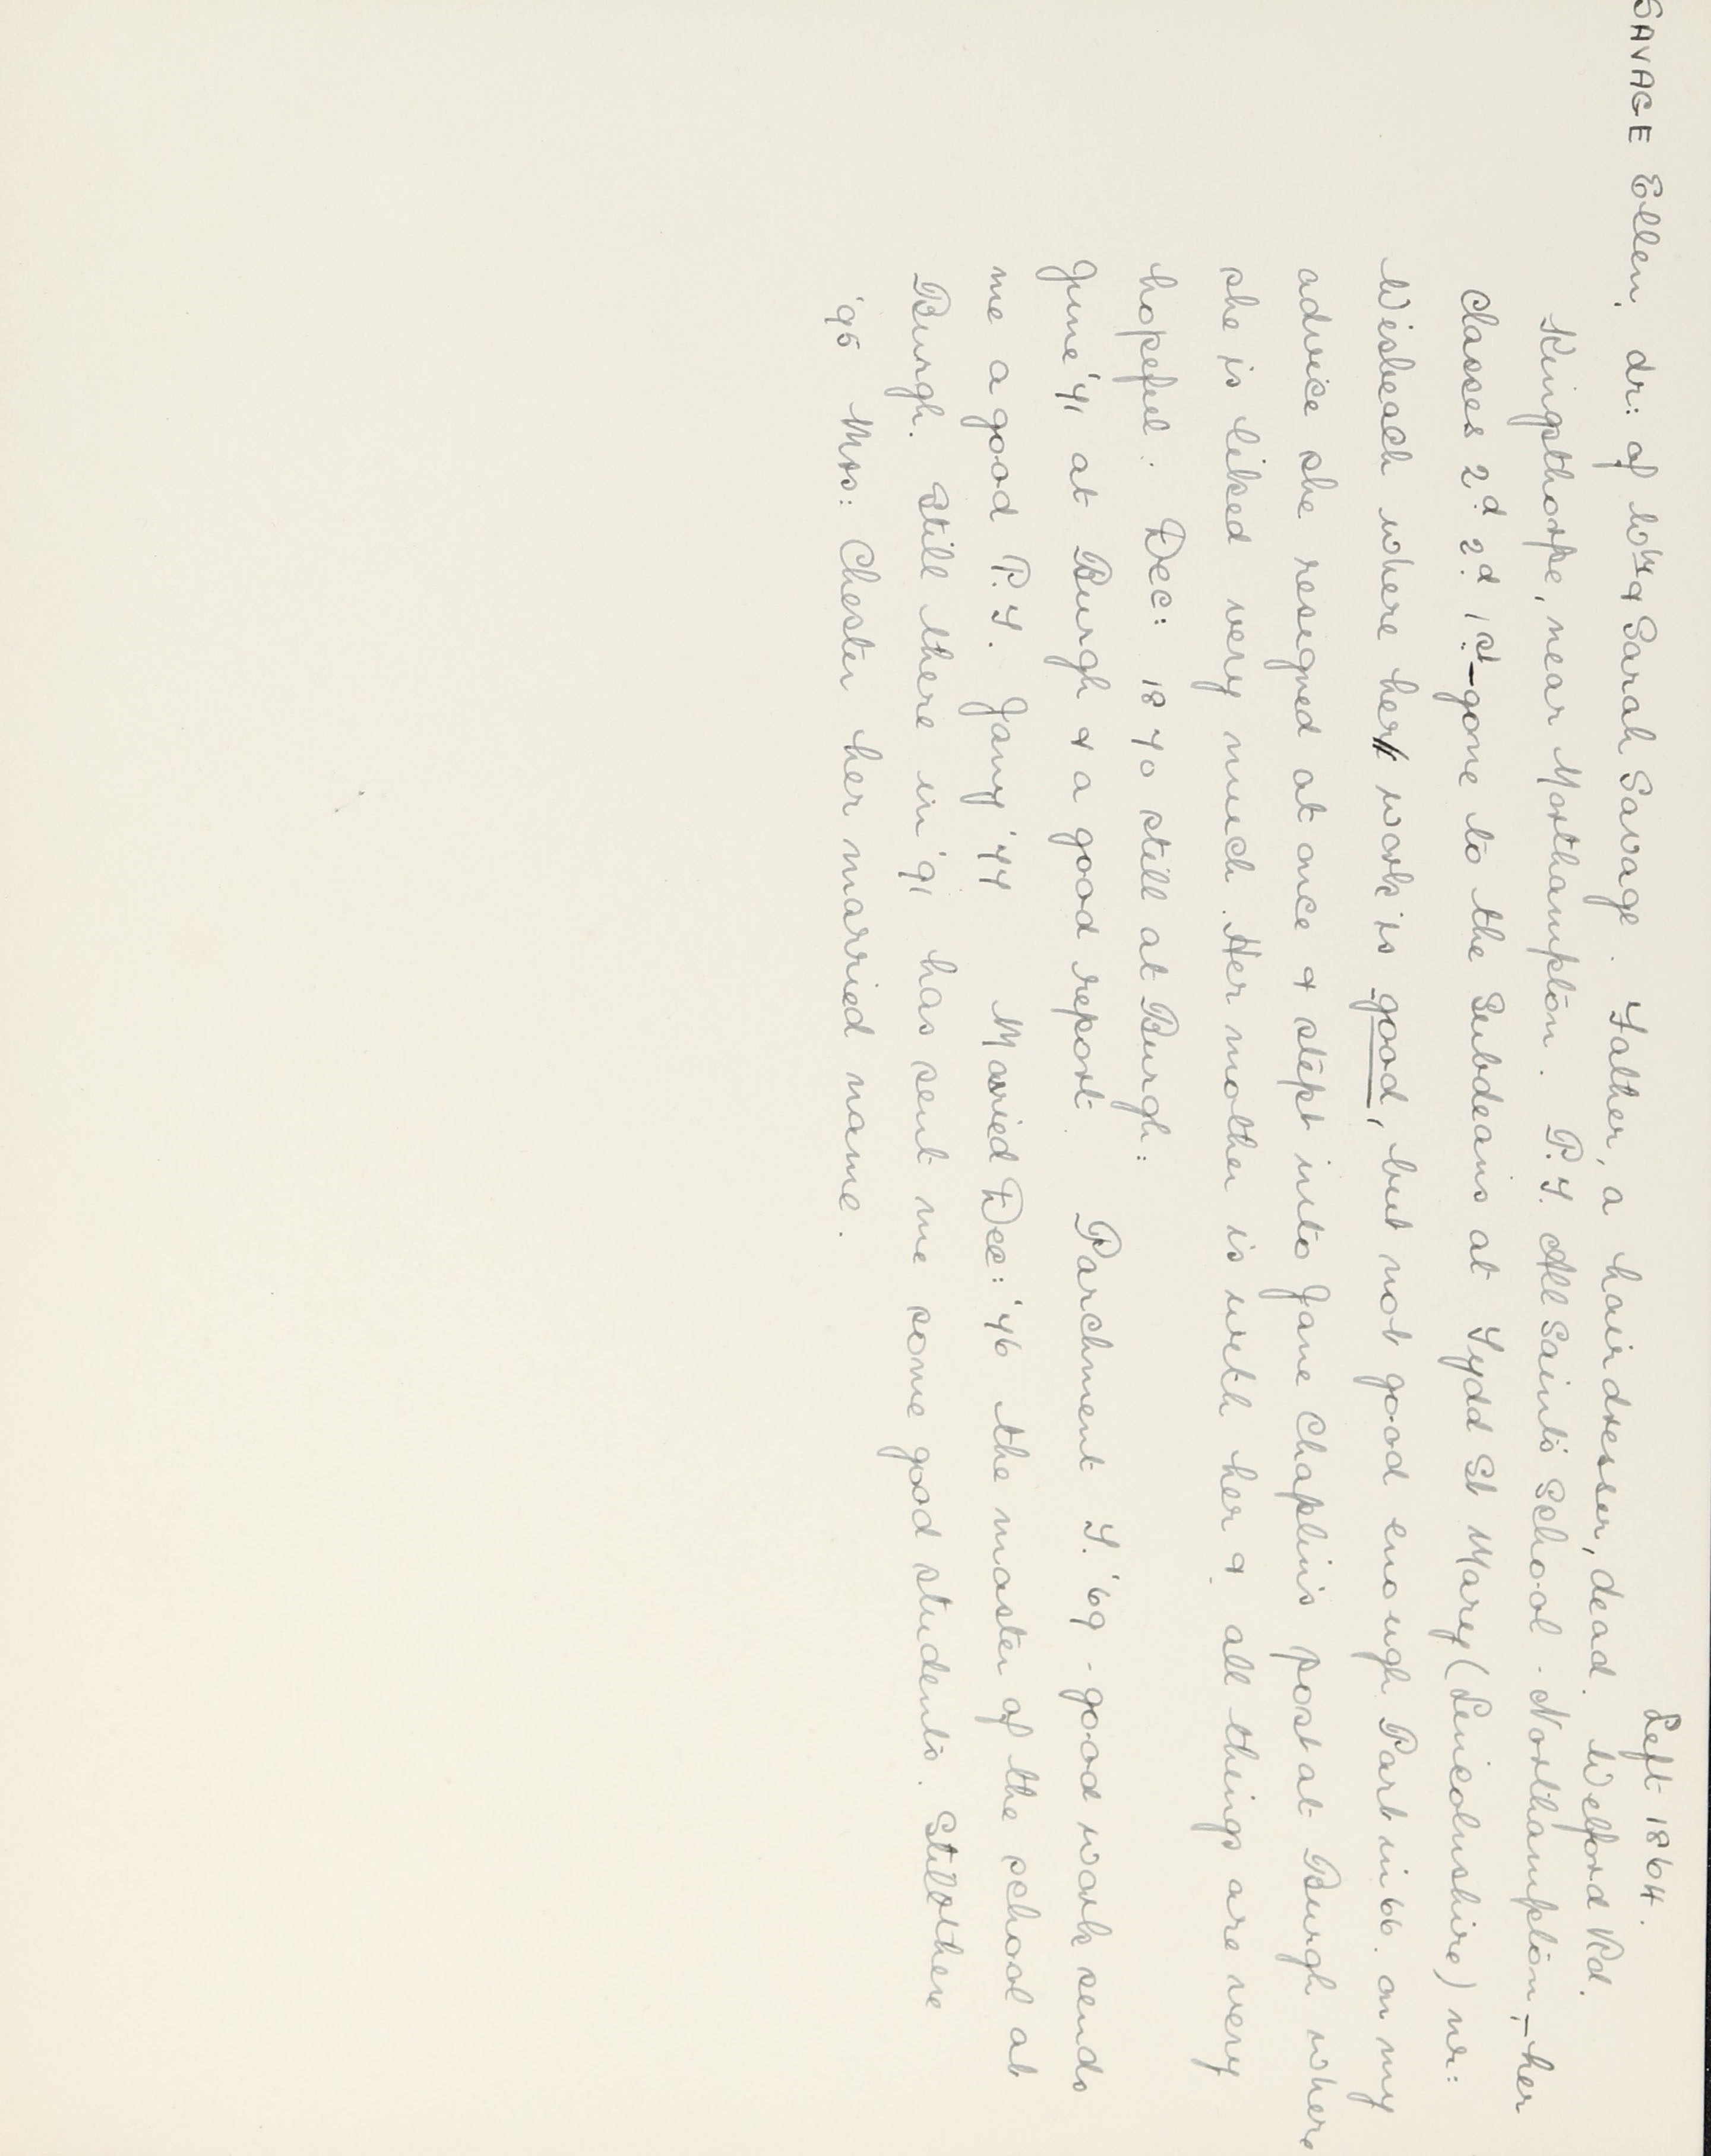 Left 1864.
SAVAGE Ellen, dr: of Wm & Sarah Savage. Father, a hairdresser, dead. Welford Rd.
Kingsthorpe, near Northampton. P.T. All Saints School - Northampton, - her
classes 2d 2d 1st - gone to the Subdeans at Tydd St Mary (Lincolnshire) nr:
Wisbeach where her work is good, but not good enough. Part in 66. on my
advice she resigned at once & stept into Jane Chaplin's post at Burgh where
she is liked very much. Her mother is with her & all things are very
hopeful. Dec: 1870 still at Burgh:
June '71 at Burgh & a good report. Parchment T. '69 - good work sends
me a good P.T. Jany '77 Married Dec: '76 the master of the school at
Burgh. Still there in '91 has sent me some good students. Still there
'95 Mrs: Chester her married name.